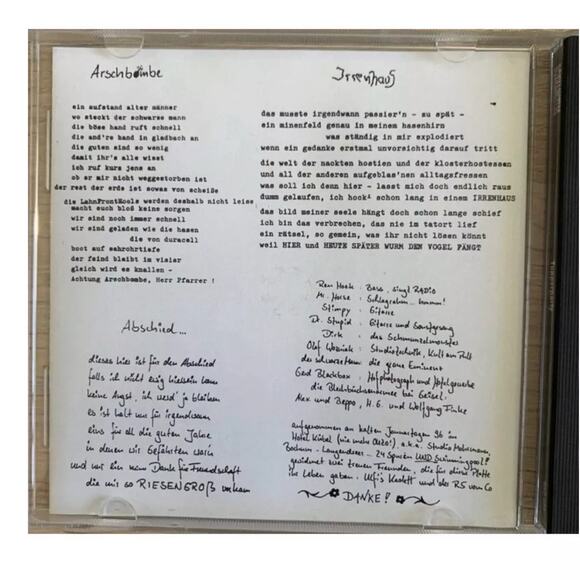 Arschbombe
ein aufstand alter männer
wo steckt der schwarze mann
die böse hand ruft schnell
die and're hand in gladbach an
die guten sind so wenig
damit ihr's alle wisst
ich ruf kurs jens an
ob er mir nicht weggestorben ist
der rest der erde ist sowas von scheiße
die LahnFrontHools werden deshalb nicht leise
macht euch bloß keine sorgen
wir sind noch immer schnell
wir sind geladen wie die hasen
die von duracell
boot auf sehrohrtiefe
der feind bleibt im visier
gleich wird es knallen -
Achtung Arschbombe, Herr Pfarrer !
Abschied...
dieses hier ist für den Abschied
falls ich nicht ewig bleiben kann
keine Angst, ich werd' ja bleiben
es ist halt nur für irgendwann
eins für all die guten Jahre
in denen wir Gefährten war'n
und nur ein man Dank für Freundschaft
die mir so RIESENGROß vorkam
Irrenhaus
das musste irgendwann passier'n - zu spät -
ein minenfeld genau in meinem hasenhirn
was ständig in mir explodiert
wenn ein gedanke erstmal unvorsichtig darauf tritt
die welt der nackten hostien und der klosterhostessen
und all der anderen aufgeblas'nen alltagsfressen
was soll ich denn hier - lasst mich doch endlich raus
dumm gelaufen, ich hock' schon lang in einem IRRENHAUS
das bild meiner seele hängt doch schon lange schief
ich bin das verbrechen, das nie im tatort lief
ein rätsel, so gemein, was ihr nicht lösen könnt
weil HIER und HEUTE SPÄTER WURM DEM VOGEL FÄNGT
Ren Hoek : Bass, singt RADIO
Mr. Horse : Schlagrahm
Stimpy : Gitarre
Dr. Stupid : Gitarre und Sonstgesang
Dirk : das Schmunzelmonster
Olaf : Studiotechnik, Kult am Pult
die graue Eminent
Gerd Blackbox : Hofphotograph und
die Blechbüchsenarmee bei Geisel.
Alex und Beppo, H.G. und Wolfgang
aufgenommen an kalten Januartagen 96 im
Hotel Kübel (nie mehr) a.k.a. Studio
Bochum - Langendreer - 24 Spuren UND Swimmingpool!
gewidmet zwei treuen Freunden, die für diese Platte
ihr Leben gaben. Ulfis Kadett und der R5 von Co
DANKE!